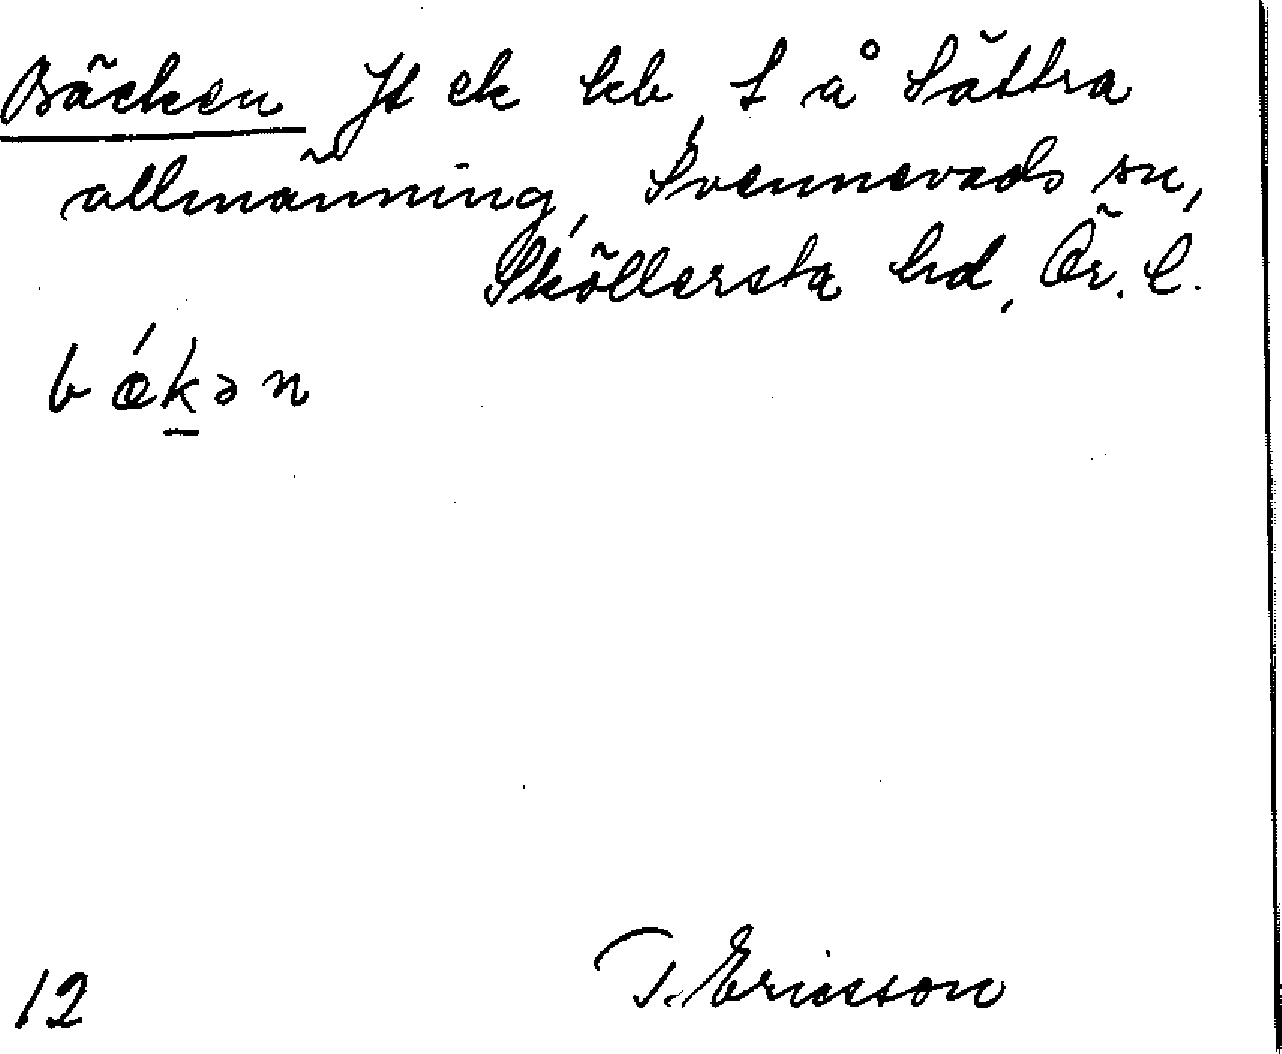 Bäcken Jt ek kb f å Sättra
allmänning, Svennevads sn,
Sköllersta hd, Ör. l.
bǽk̲ən
T. Ericsson
12